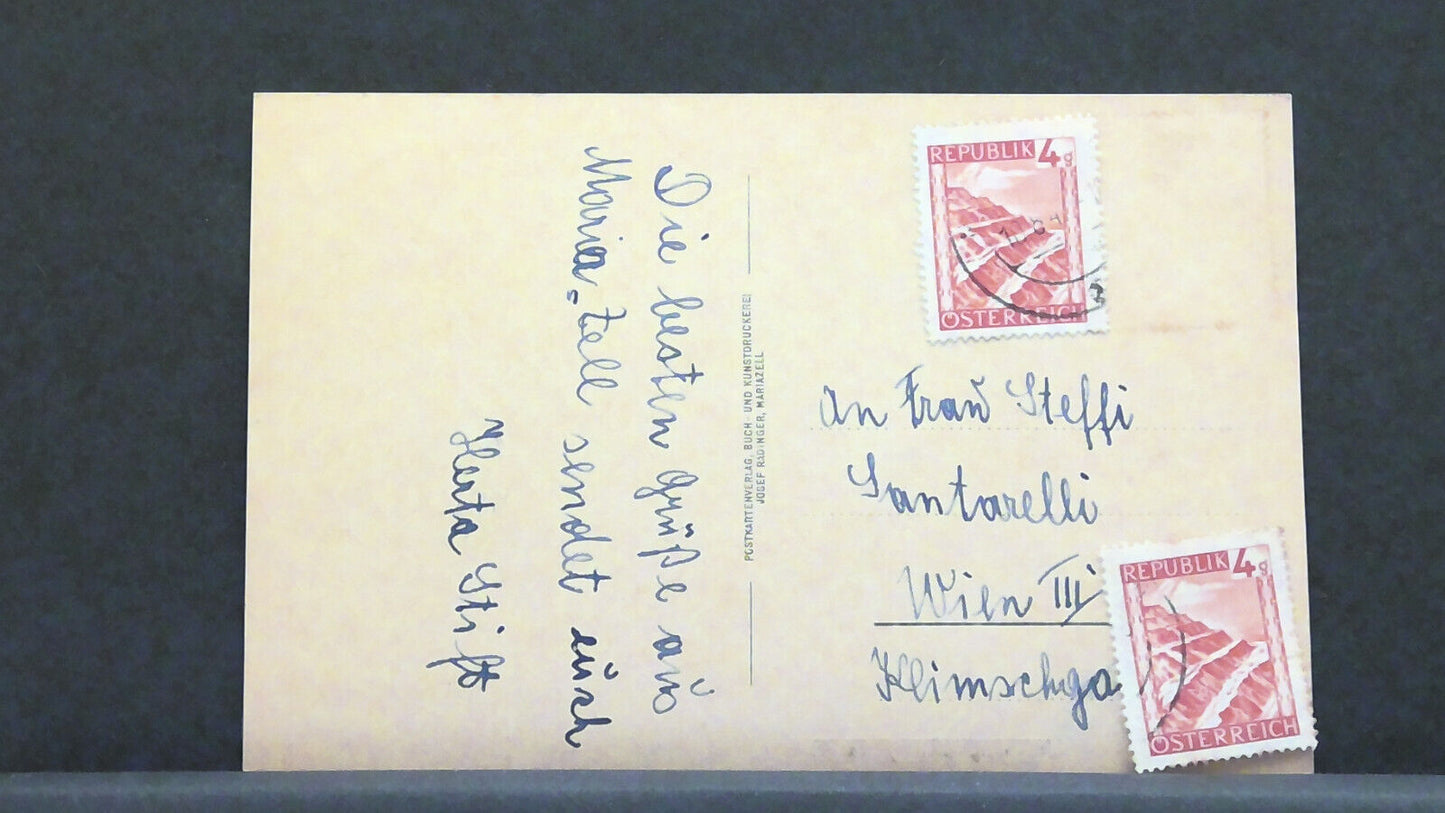 Die besten Grüße aus
Maria=Zell sendet euch
Herta Stift
POSTKARTENVERLAG, BUCH- UND KUNSTDRUCKEREI
JOSEF RADINGER, MARIAZELL
REPUBLIK 4g
ÖSTERREICH
An Frau Steffi
Santarelli
Wien III
Klimschga
REPUBLIK 4g
ÖSTERREICH